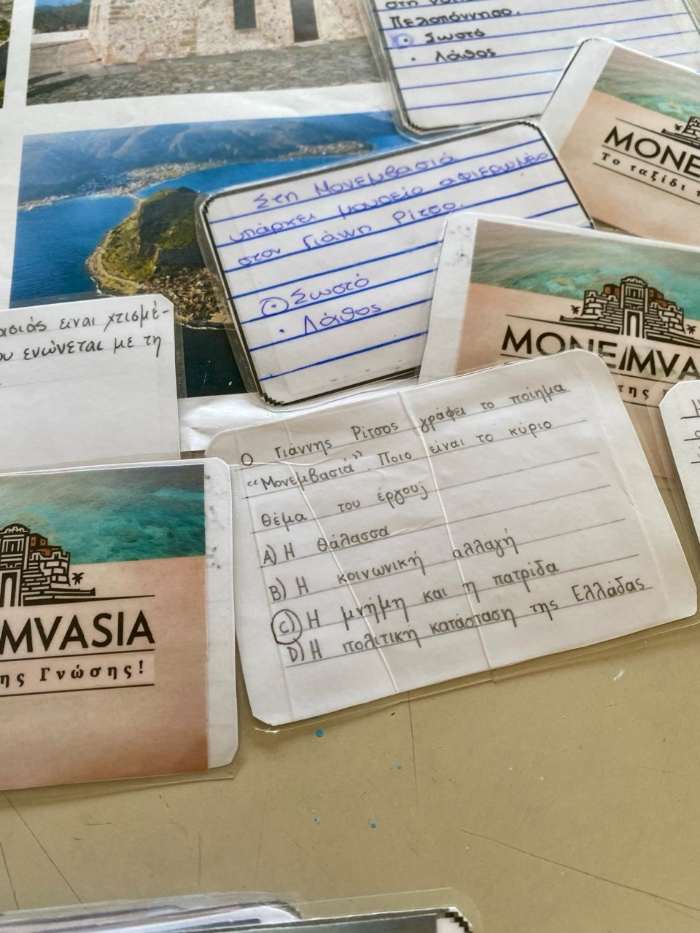 Πελοπόννησο.
Σωστό
Λάθος
MONE
Το ταξίδι
Στη Μονεμβασιά
υπάρχει μουσείο αφιερωμένο
στον Γιάννη Ρίτσο.
Σωστό
Λάθος
MONEMVA
είναι χτισμέ-
ου ενώνεται με τη
Ο Γιάννης Ρίτσος γράφει το ποίημα
"Μονεμβασιά". Ποιο είναι το κύριο
θέμα του έργου;
A) Η θάλασσα
B) Η κοινωνική αλλαγή
C) Η μνήμη και η πατρίδα
D) Η πολιτική κατάσταση της Ελλάδας
MVASIA
ης Γνώσης!